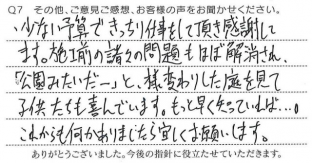 Q7 その他、ご意見ご感想、お客様の声をお聞かせください。
少ない予算できっちり仕事をして頂き感謝して
ます。施工前の諸々の問題もほぼ解消され、
「公園みたいだー」と、様変わりした庭を見て
子供たちも喜んでいます。もっと早く知っていれば…。
これからも何かありましたら宜しくお願いします。
ありがとうございました。今後の指針に役立たせていただきます。